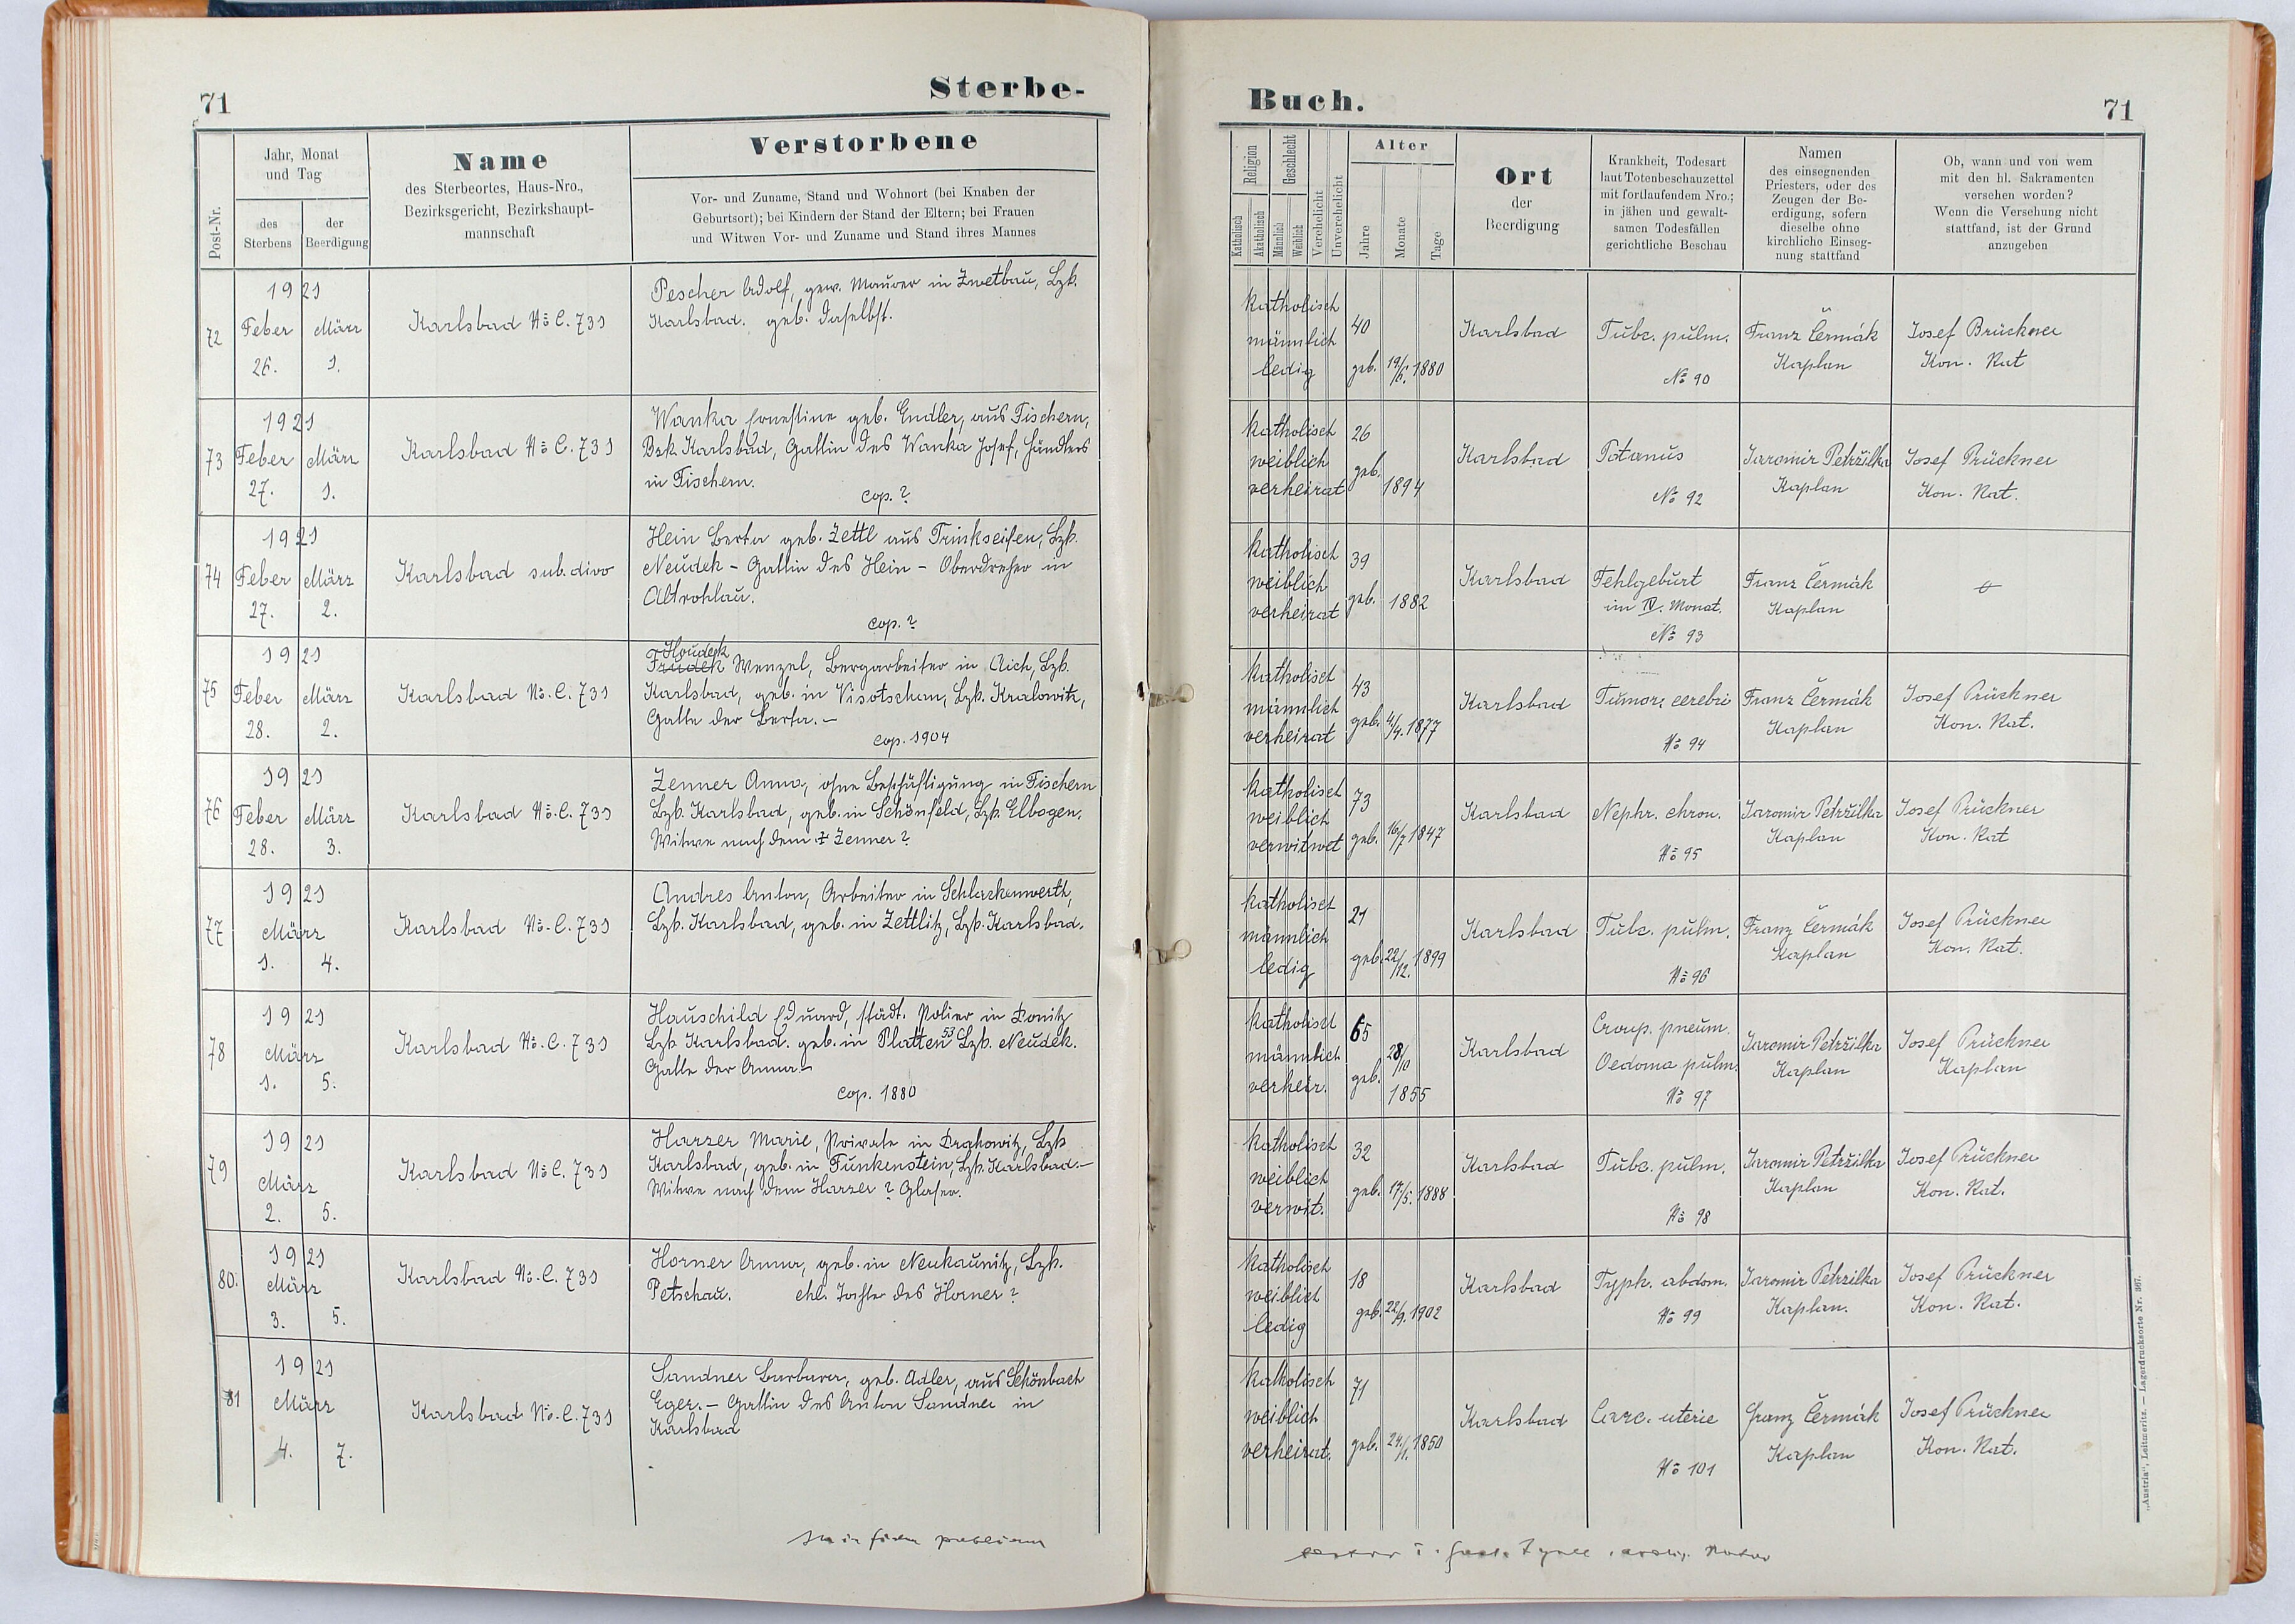 71
Sterbe-
Post-Nr.
Jahr, Monat
und Tag
des
Sterbens
der
Beerdigung
Name
des Sterbeortes, Haus-Nro.,
Bezirksgericht, Bezirkshaupt-
mannschaft
Verstorbene
Vor- und Zuname, Stand und Wohnort (bei Knaben der
Geburtsort); bei Kindern der Stand der Eltern; bei Frauen
und Witwen Vor- und Zuname und Stand ihres Mannes
72
1921
Feber März
26. 1.
Karlsbad No C. 731
Pescher Adolf, gew. Maurer in Zwetbau, Bzk.
Karlsbad. geb. daselbst.
73
1921
Feber März
27. 1.
Karlsbad No C. 731
Wanka Ernestine geb. Endler, aus Fischern,
Bzk. Karlsbad, Gattin des Wanka Josef, Händlers
in Fischern.
cop. ?
74
1921
Feber März
27. 2.
Karlsbad sub. divo
Hein Berta geb. Zettl aus Trinkseifen, Bzk.
Neudek - Gattin des Hein - Oberdreher in
Altrohlau.
cop. ?
75
1921
Feber März
28. 2.
Karlsbad No. C. 731
Houdek
Frudek Wenzel, Bergarbeiter in Aich, Bzk.
Karlsbad, geb. in Visotschan, Bzk. Kralowitz,
Gatte der Berta. -
cop. 1904
76
1921
Feber März
28. 3.
Karlsbad No. C. 731
Zenner Anna, ohne Beschäftigung in Fischern
Bzk. Karlsbad, geb. in Schönfeld, Bzk. Elbogen.
Witwe nach dem ‡ Zenner ?
77
1921
März
1. 4.
Karlsbad No. C. 731
Andres Anton, Arbeiter in Schlackenwerth,
Bzk. Karlsbad, geb. in Zettlitz, Bzk. Karlsbad.
78
1921
März
1. 5.
Karlsbad No. C. 731
Hauschild Eduard, städt. Polier in Donitz
Bzk Karlsbad. geb. in Platten 53 Bzk. Neudek.
Gatte der Anna. -
cop. 1880
79
1921
März
2. 5.
Karlsbad No C. 731
Harzer Marie, Private in Drahowitz, Bzk
Karlsbad, geb. in Funkenstein, Bzk. Karlsbad. -
Witwe nach dem Harzer ? Glaser.
80.
1921
März
3. 5.
Karlsbad No. C. 731
Horner Anna, geb. in Neukaunitz, Bzk.
Petschau. ehl. Tochter des Horner ?
81
1921
März
4. 7.
Karlsbad No. C. 731
Sandner Barbara, geb. Adler, aus Schönbach
Eger. - Gattin des Anton Sandner in
Karlsbad
Buch.
71
Religion
Katholisch
Akatholisch
Geschlecht
Männlich
Weiblich
Verehelicht
Unverehelicht
Alter
Jahre
Monate
Tage
Ort
der
Beerdigung
Krankheit, Todesart
laut Totenbeschauzettel
mit fortlaufendem Nro.;
in jähen und gewalt-
samen Todesfällen
gerichtliche Beschau
Namen
des einsegnenden
Priesters, oder des
Zeugen der Be-
erdigung, sofern
dieselbe ohne
kirchliche Einseg-
nung stattfand
Ob, wann und von wem
mit den hl. Sakramenten
versehen worden?
Wenn die Versehung nicht
stattfand, ist der Grund
anzugeben
katholisch
männlich
ledig
40
geb. 19/6. 1880
Karlsbad
Tubc. pulm.
No 90
Franz Čermák
Kaplan
Josef Brückner
Kon. Rat
katholisch
weiblich
verheirat
26
geb. 1894
Karlsbad
Tetanus
No 92
Jaromir Petržilka
Kaplan
Josef Brückner
Kon. Rat.
katholisch
weiblich
verheirat
39
geb. 1882
Karlsbad
Fehlgeburt
im IV. Monat.
No 93
Franz Čermák
Kaplan
katholisch
männlich
verheirat
43
geb. 4/9. 1877
Karlsbad
Tumor. cerebri
No 94
Franz Čermák
Kaplan
Josef Brückner
Kon. Rat.
katholisch
weiblich
verwitwet
73
geb. 16/7 1847
Karlsbad
Nephr. chron.
No 95
Jaromir Petržilka
Kaplan
Josef Brückner
Kon. Rat
katholisch
männlich
ledig
21
geb. 22/12. 1899
Karlsbad
Tubc. pulm.
No 96
Franz Čermák
Kaplan
Josef Brückner
Kon. Rat.
katholisch
männlich
verheir.
65
geb. 28/10
1855
Karlsbad
Croup. pneum.
Oedoma pulm.
No 97
Jaromir Petržilka
Kaplan
Josef Brückner
Kaplan
katholisch
weiblich
verwit.
32
geb. 17/5. 1888
Karlsbad
Tubc. pulm.
No 98
Jaromir Petržilka
Kaplan
Josef Brückner
Kon. Rat.
katholisch
weiblich
ledig
18
geb. 22/9. 1902
Karlsbad
Typh. abdom.
No 99
Jaromir Petrzilka
Kaplan.
Josef Brückner
Kon. Rat.
katholisch
weiblich
verheirat.
71
geb. 24./1. 1850
Karlsbad
Carc. uterie
No 101
Franz Čermák
Kaplan
Josef Brückner
Kon. Rat.
„Austria", Leitmeritz. — Lagerdrucksorte Nr. 867.